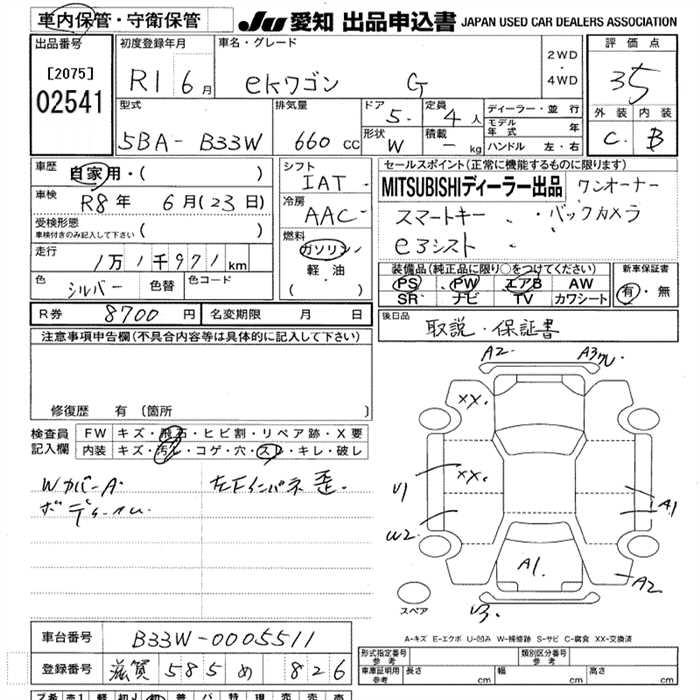 車内保管・守衛保管
JU 愛知 出品申込書 JAPAN USED CAR DEALERS ASSOCIATION
出品番号
[2075]
02541
初度登録年月
R1 6月
車名・グレード
eKワゴン G
2WD
・
4WD
評価点
3.5
外装 内装
C. B
型式
5BA- B33W
排気量
660 cc
ドア
5.
形状
W
定員
4人
積載
- kg
ディーラー・並行
モデル年式 年
ハンドル 左・右
車歴
自家用・( )
車検
R8年 6月(23日)
受検形態
車検付きのみ記入して下さい ( )
走行
1万1千971 km
色
シルバー
色替
色コード
シフト
IAT
冷房
AAC
燃料
ガソリン
軽・油
( ・ )
R券 8700円
名変期限 月 日
セールスポイント(正常に機能するものに限ります)
MITSUBISHIディーラー出品 ワンオーナー
スマートキー 、・バックカメラ
e3シスト
装備品(純正品に限り○をつけてください)
PS PW エアB AW
SR ナビ TV カワシート
新車保証書
有・無
後日品
取説・保証書
注意事項申告欄(不具合内容等は具体的に記入して下さい)
修復歴 有〔箇所 〕
検査員記入欄
FW キズ・飛石・ヒビ割・リペア跡・X要
内装 キズ・汚れ・コゲ・穴・スレ・キレ・破レ
WカバーA
左Fインパネ歪.
A2
A3
XX.
XX.
U1
W2
A1
A1
A2
U3
スペア
A-キズ E-エクボ U-凹み W-補修跡 S-サビ C-腐食 XX-交換済
車台番号 B33W-0005511
登録番号 滋賀 585 め 826
形式指定番号
参考
類別区分番号
参考
車庫証明用
参考
長さ cm 幅 cm 高さ cm